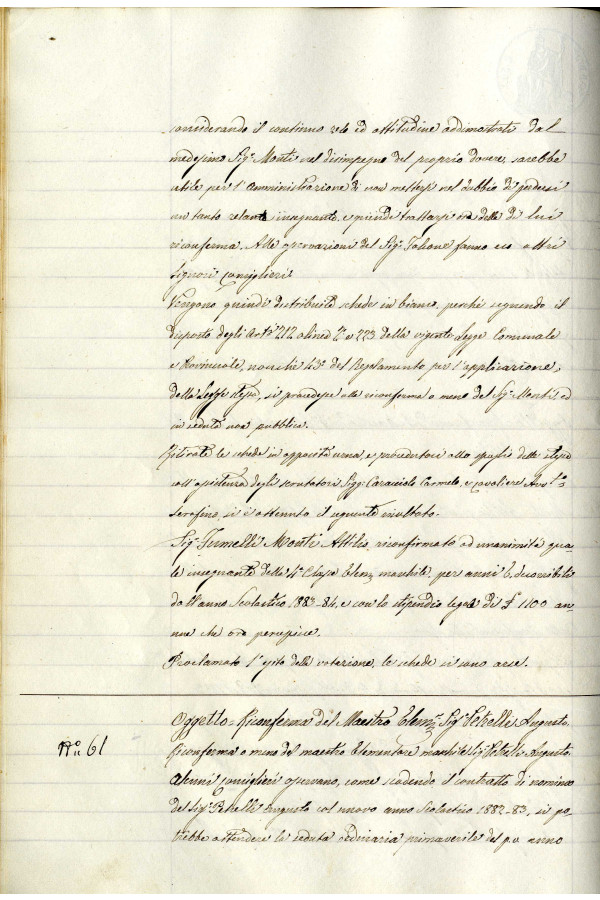 considerando il continuo zelo ed attitudine addimostrati dal
medesimo Sig.r Monti nel disimpegno del proprio dovere sarebbe
utile per l'amministrazione di non mettersi nel dubbio di perdersi
un tanto zelante insegnante, e quindi trattarsi ora della di lui
riconferma. Alle osservazioni del Sig.r Falcone fanno eco altri
Signori Consiglieri
Vengono quindi distribuite schede in bianco, perché seguendo il
disposto degli Art.i 212 alinea 2.o e 223 della vigente Legge Comunale
e Provinciale, nonché 43.o del Regolamento per l'applicazione,
della Legge stessa, si procedesse alla riconferma o meno del Sig.r Monti ed
in seduta non pubblica.
Ritirate le schede in apposita urna, e procedutosi allo spoglio delle stesse
coll'assistenza degli scrutatori Sigg.i Caracciolo Carmelo, e Cavaliere Ant.o
Serafino, si è ottenuto il seguente risultato.
Sig.r Monti Attilio, riconfermato ad unanimità qua-
le insegnante della 4.a Classe Elem. maschile, per anni 6, decorribili
dall'anno Scolastico 1883-84, e con lo stipendio legale di £ 1100 an-
nue che ora percepisce.
Proclamato l'esito della votazione, le schede si sono arse.
N.o 61
Oggetto = Riconferma del Maestro Elem.re Sig.r Petrelli Augusto
Riconferma o meno del maestro Elementare maschile Sig.r Petrelli Augusto
Alcuni consiglieri osservano, come scadendo il contratto di nomina
del Sig.r Petrelli Augusto col nuovo anno Scolastico 1882-83, si po-
trebbe attendere la seduta ordinaria primaverile del p.v. anno